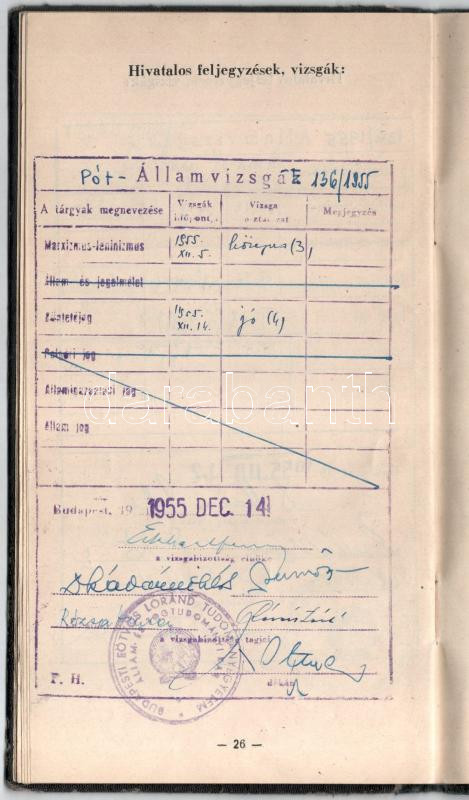 Hivatalos feljegyzések, vizsgák:
Pót- Államvizsgák 136/1955
A tárgyak megnevezése Vizsgák időpont. Vizsga Megjegyzés
Marxizmus-leninizmus 1955. XII. 5. közepes (3)
Állam- és jogelmélet
Büntetőjog 1955. XII. 14. jó (4)
Polgári jog
Államigazgatási jog
Állam jog
darabanth
Budapest, 19 1955 DEC. 14.
a vizsgabizottság elnöke
a vizsgabizottság tagjai
BUDAPESTI EÖTVÖS LORÁND TUDOMÁNYEGYETEM
ÁLLAM- ÉS JOGTUDOMÁNYI KAR
P. H.
dékán
— 26 —